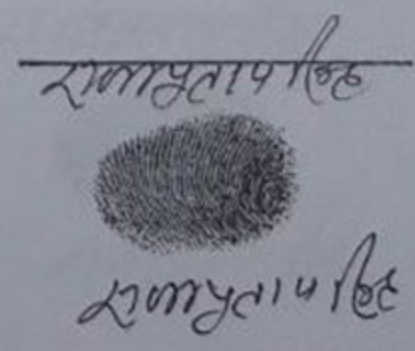 राजप्रताप सिंह
राजप्रताप सिंह